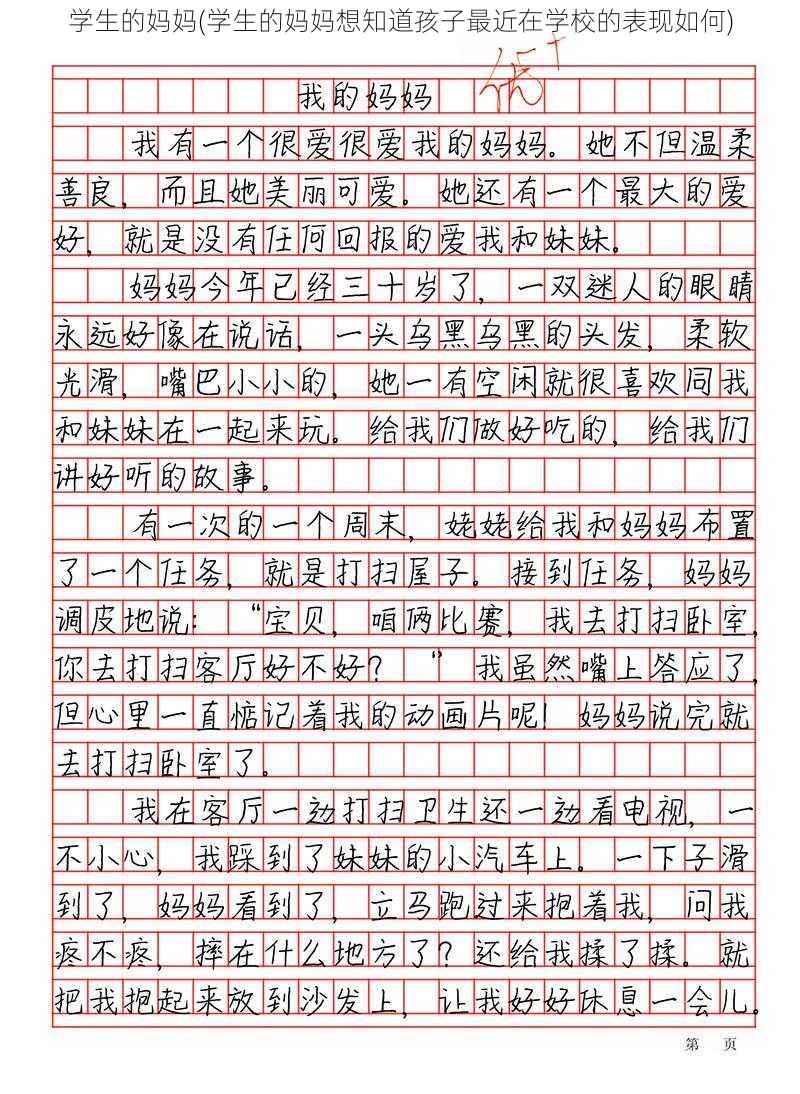 学生的妈妈(学生的妈妈想知道孩子最近在学校的表现如何)
我的妈妈 优+
我有一个很爱很爱我的妈妈。她不但温柔
善良，而且她美丽可爱。她还有一个最大的爱
好，就是没有任何回报的爱我和妹妹。
妈妈今年已经三十岁了，一双迷人的眼睛
永远好像在说话，一头乌黑乌黑的头发，柔软
光滑，嘴巴小小的，她一有空闲就很喜欢同我
和妹妹在一起来玩。给我们做好吃的，给我们
讲好听的故事。
有一次的一个周末，姥姥给我和妈妈布置
了一个任务，就是打扫屋子。接到任务，妈妈
调皮地说：“宝贝，咱俩比赛，我去打扫卧室，
你去打扫客厅好不好？”我虽然嘴上答应了，
但心里一直惦记着我的动画片呢！妈妈说完就
去打扫卧室了。
我在客厅一边打扫卫生还一边看电视，一
不小心，我踩到了妹妹的小汽车上。一下子滑
到了，妈妈看到了，立马跑过来抱着我，问我
疼不疼，摔在什么地方了？还给我揉了揉。就
把我抱起来放到沙发上，让我好好休息一会儿。
第 页